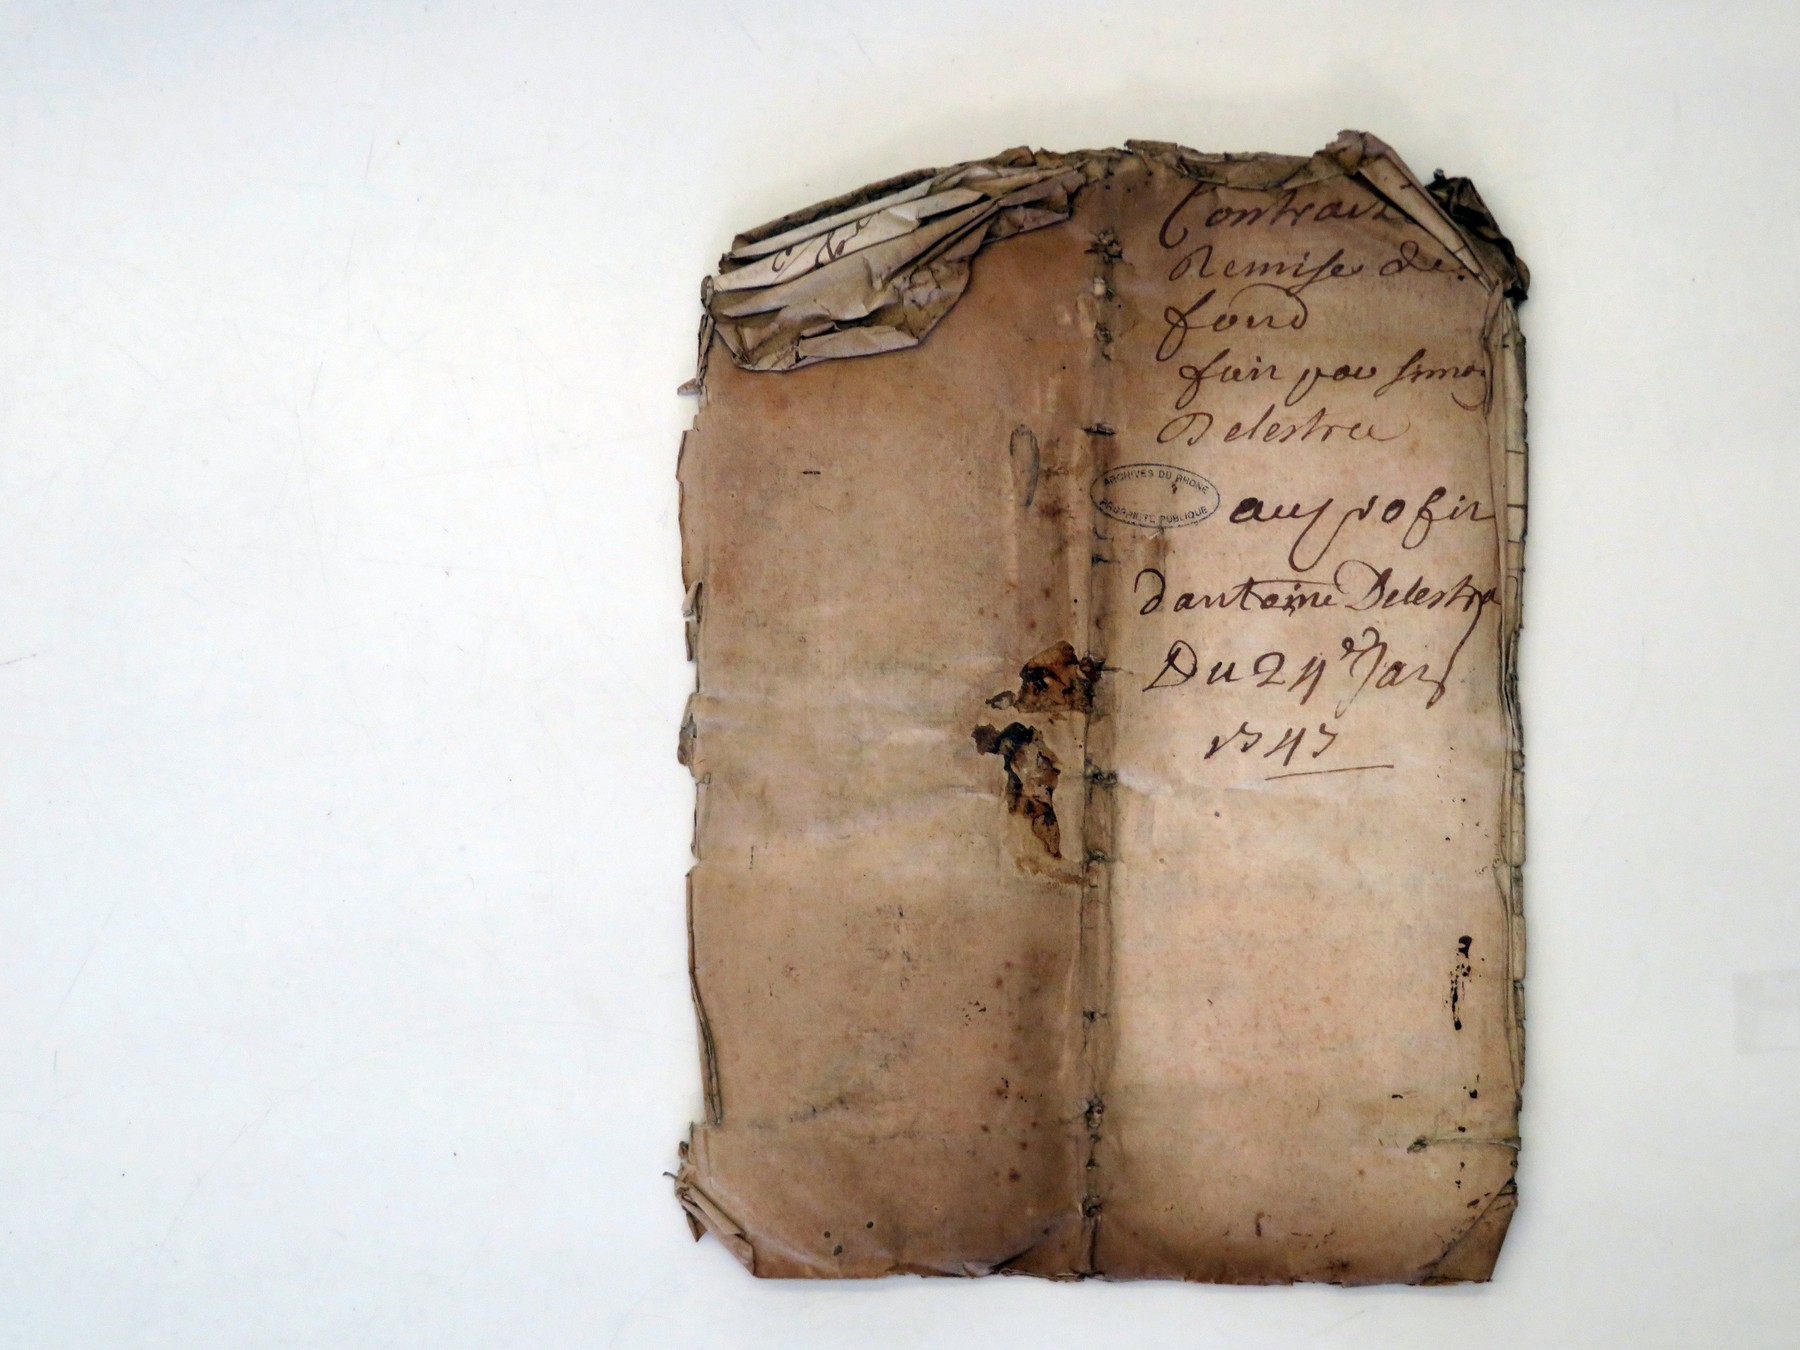 Contract
Remise de
fond
fait par simon
Delestra
ARCHIVES DU RHONE
PROPRIETE PUBLIQUE
au profit
dantoine Delestra
Du 24e Jars
1747